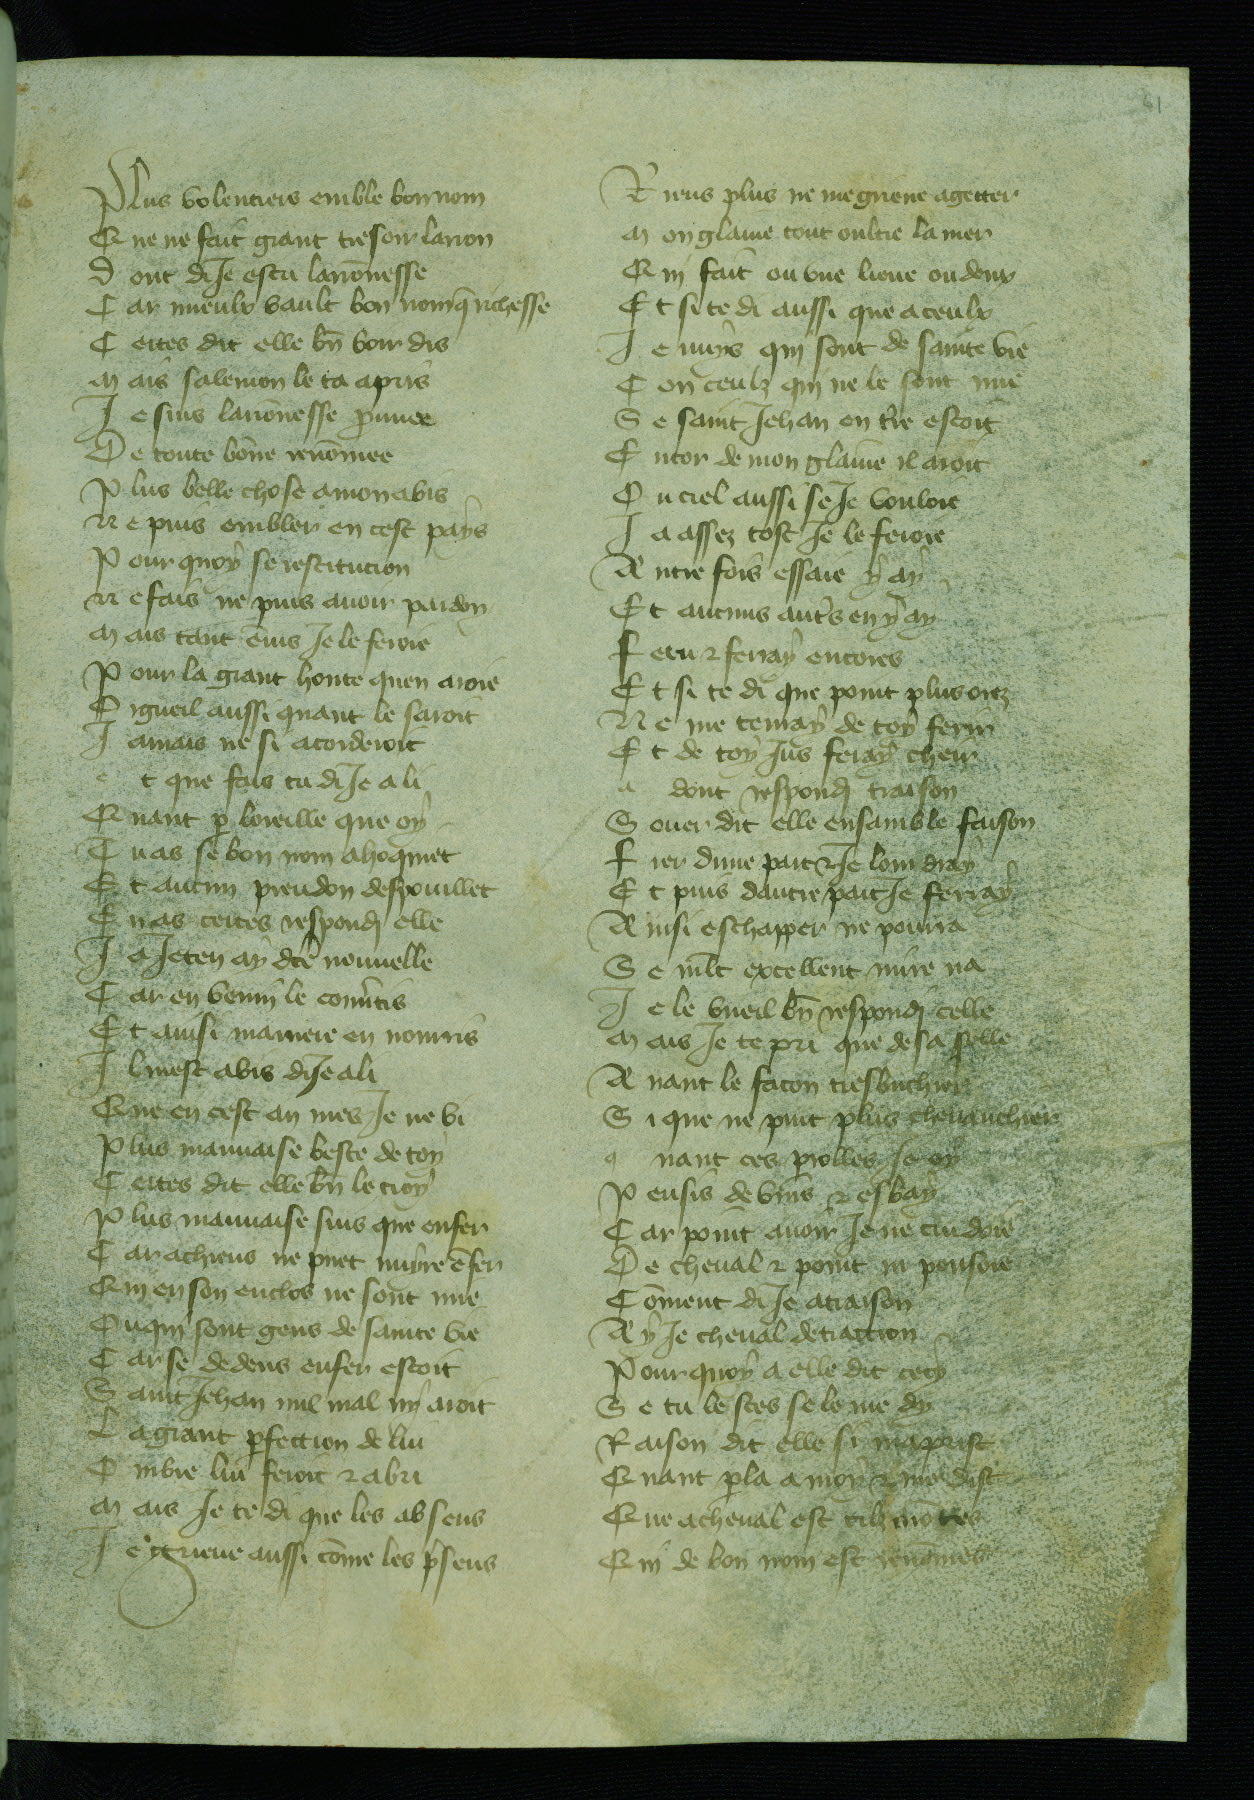 41
Plus volentiers emble bon nom
Que ne fait grant tresoir laron
Dont di Je es tu laronnesse
Car mieulx vault bon nom q̄ richesse
Certes dit elle bn̄ voir dis
Mais salemon le ta apris
Je suis laron̄esse prouuee
De toute bon̄e renom̄ee
Plus belle chose a mon avis
Ne puis embler en cest pays
Pour quoy se restitucion
Ne fais ne puis avoir pardon
Mais tant enuis Je le feroie
Pour la grant honte quen aroie
Orgueil aussi quant le saroit
Jamais ne si acorderoit
et que fais tu di Je a li
Quant p̲ loreille que oy
Tu as se bon nom ahoquiet
Et aucun preudon despouillet
En as certes respond elle
Ja Jeten ay dc̄e nouuelle
Car en venin le con̄tis
Et ainsi maniere en nourris
Il mest avis di Je a li
Que en cest an mes Je ne vi
Plus mauuaise beste de toy
Certes dit elle bn̄ le croy
Plus mauuaise suis que enfer
Car a chieus ne puet nuire ēfer
Qui en son enclos ne sont mie
Ou qui sont gens de sainte vie
Car se dedens enfer estoit
Saint Jehan nul mal ny aroit
La grant p̲fection de lui
Ombre lui feroit ⁊ abri
Mais Je te di que les absens
Je grieue aussi com̄e les p̄sens
Riens plus ne me grieue a getter
Mon glaiue tout oultre la mer
Qui fait ou vne lieue ou deux
Et si te di aussi que a ceulx
Je nuys qui sont de sainte vie
Con ceulz qui ne le sont mie
Se saint Jehan en t̄re estoit
Encor de mon glaiue il aroit
Ou ciel aussi se Je vouloie
Ja assez tost Je le feroie
Autre fois essaie y ay
Et aucuns aut̄s en y ay
Feru ⁊ ferray encores
Et si te di que point plus orez
Ne me tenray de toy ferir
Et de toy Jus feray cheir
a dont respond traison
Souer dit elle ensamble faison
Fier dune part ⁊ Je loindray
Et puis dautre part Je ferray
Ainsi eschapper ne pourra
Se ml̄t excellent mire na
Je le vueil bn̄ respond celle
Mais Je te pri que de sa selle
Auant le facon tresbuchier
Si que ne puit plus cheuauchier
quant ces p̲olles Je oy
Pensis deuins ⁊ esbay
Car point auoir Je ne cuidoie
De cheual ⁊ point ni pensoie
Com̄ent di Je a traison
Ay Je cheual detraction
Pour quoy a elle dit cecy
Se tu le sces se le me dy
Raison dit elle si maprist
Quant p̲la a moy ⁊ me dist
Que a cheual est cilz mon̄tes
Qui de bon nom est renom̄es